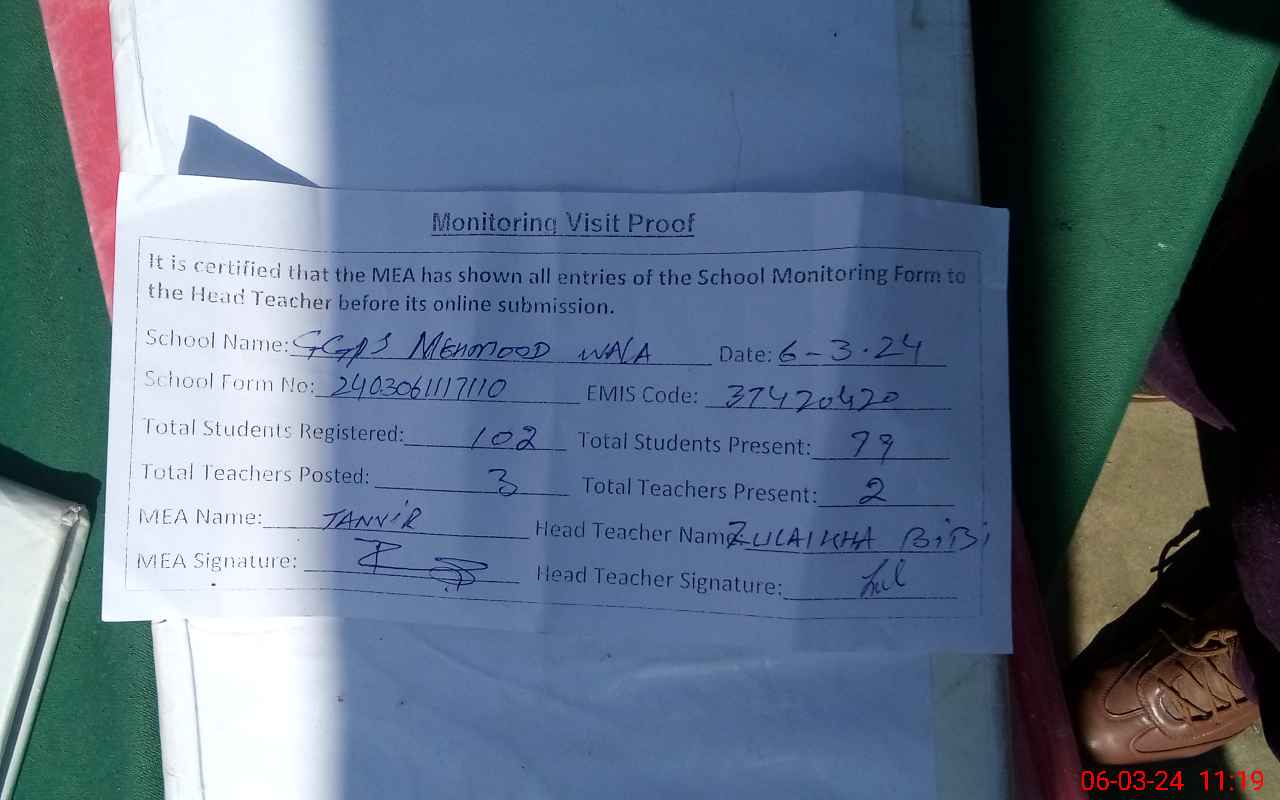 Monitoring Visit Proof
It is certified that the MEA has shown all entries of the School Monitoring Form to
the Head Teacher before its online submission.
School Name: GGPS MEHMOOD WALA Date: 6-3-24
School Form No: 2403061117110 EMIS Code: 37420420
Total Students Registered: 102 Total Students Present: 79
Total Teachers Posted: 3 Total Teachers Present: 2
MEA Name: TANViR Head Teacher Name ZULAIKHA BiBi
MEA Signature: Head Teacher Signature: Zul
06-03-24 11:19